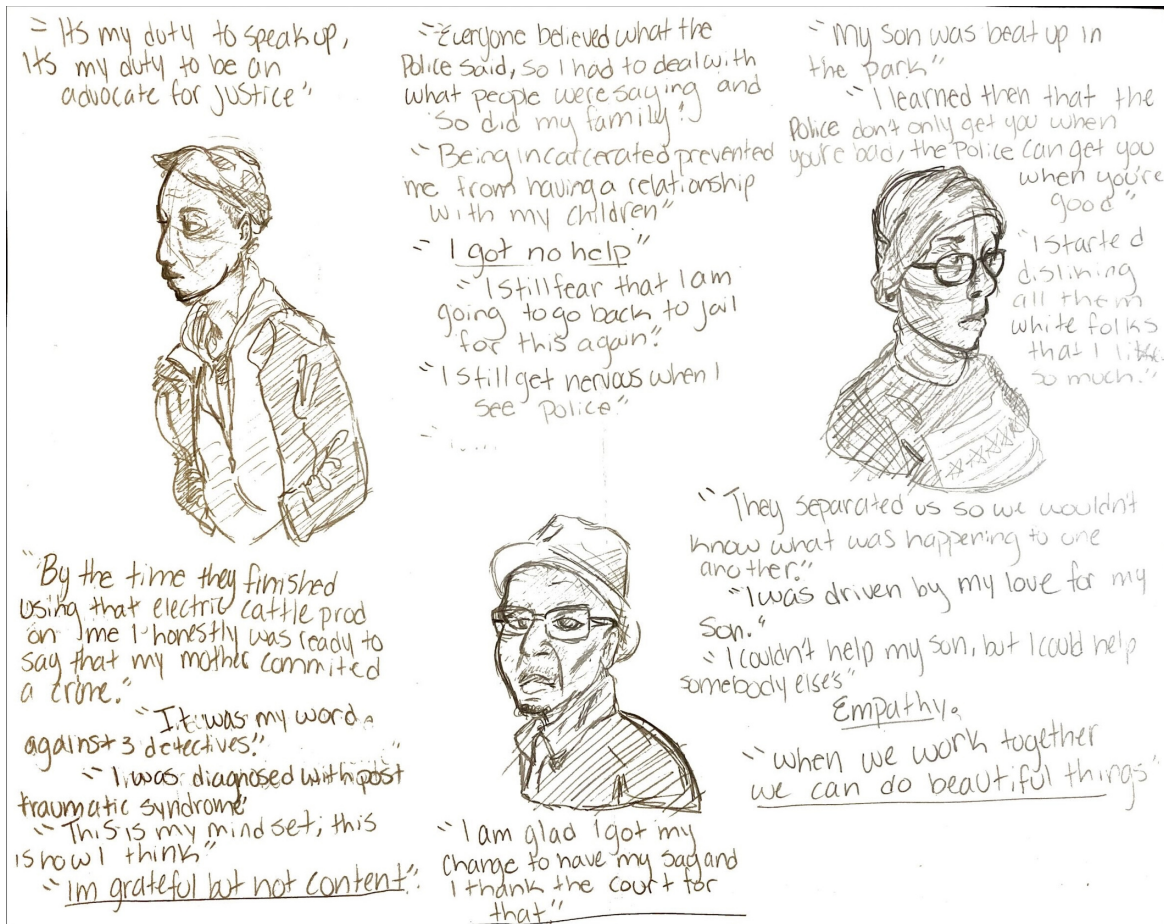 "Its my duty to speak up,
Its my duty to be an
advocate for justice"
"By the time they finished
using that electric cattle prod
on me I honestly was ready to
say that my mother commited
a crime."
"It was my word
against 3 detectives."
"I was diagnosed with post
traumatic syndrome"
"This is my mindset; this
is how I think"
"Im grateful but not content".
"Everyone believed what the
Police said, so I had to deal with
what people were saying and
so did my family."
"Being incarcerated prevented
me from having a relationship
with my children"
"I got no help"
"I still fear that I am
going to go back to jail
for this again."
"I still get nervous when I
see police."
"I am glad I got my
change to have my say and
I thank the court for
that."
"My son was beat up in
the park"
"I learned then that the
Police don't only get you when
you're bad, the Police can get you
when you're
good"
"I started
dislining
all them
white folks
that I like
so much."
"They separated us so we wouldn't
know what was happening to one
another."
"I was driven by my love for my
son."
"I couldn't help my son, but I could help
somebody else's"
Empathy.
"when we work together
we can do beautiful things"